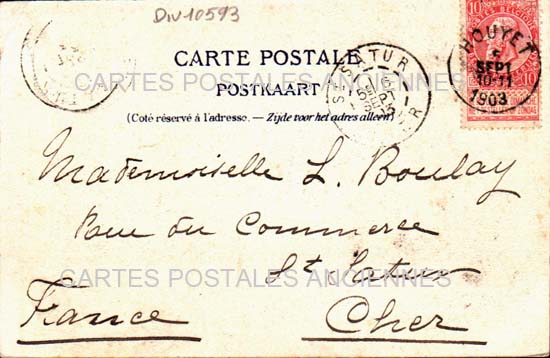 DIV10593
CARTE POSTALE
POSTKAART
(Coté réservé à l'adresse. — Zijde voor het adres alleen)
CARTES POSTALES ANCIENNES
HOUYET
5
SEPT
10-11
1903
10 10
Mademoiselle L. Boulay
Rue du Commerce
St Satur
CARTES POSTALES ANCIENNES
France
Cher